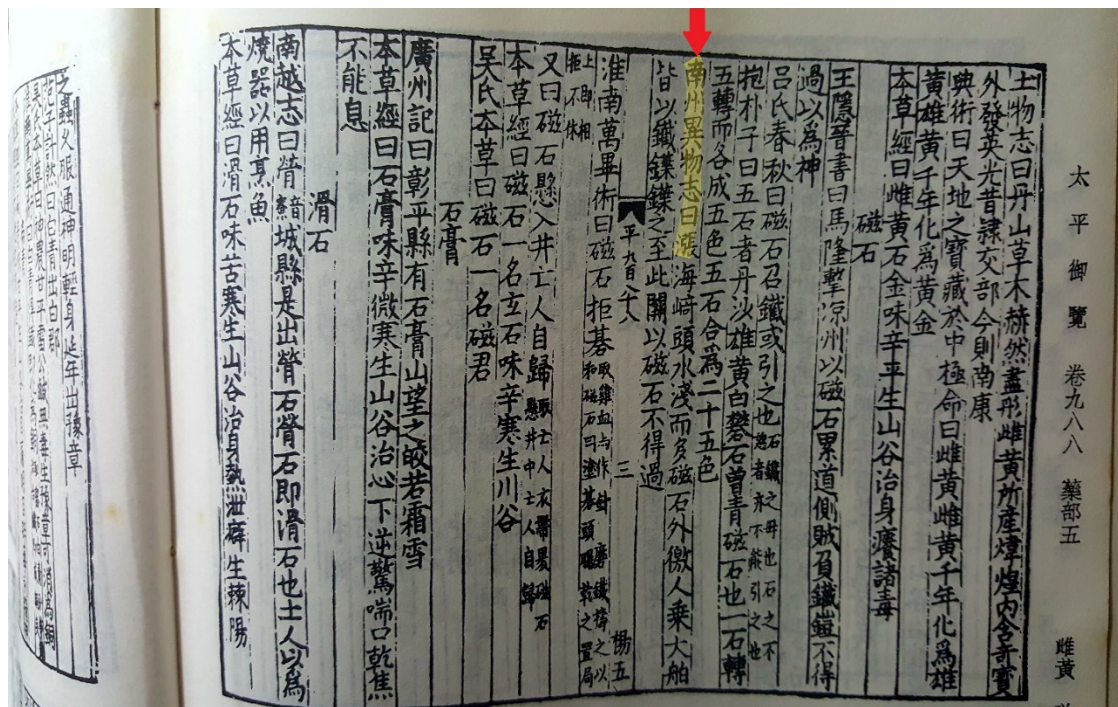 太平御覽 卷九八八 藥部五
雌黃
土物志曰丹山草木赫然盡彤雌黃所產煒煌内含奇寶
外發英光昔隷交部今則南康
典術曰天地之寶藏於中極命曰雌黃雌黃千年化爲雄
黃雄黃千年化爲黃金
本草經曰雌黃石金味辛平生山谷治身癢諸毒
磁石
王隱晉書曰馬隆擊涼州以磁石累道側賊負鐵鎧不得
過以爲神
吕氏春秋曰磁石召鐵或引之也石鐵之母也石之不慈者亦不能引之也
抱朴子曰五石者丹沙雄黃白礬石曾青磁石也一石轉
五轉而各成五色五石合爲二十五色
南州異物志曰漲海崎頭水淺而多磁石外徼人乘大舶
皆以鐵鍱鍱之至此關以磁石不得過
平九百八十八 三 楊五
淮南萬畢術曰磁石拒碁取雞血與作針磨鐵擣之以和磁石曰塗碁頭曝乾之置局上即相拒不休
又曰磁石懸入井亡人自歸取亡人衣帶裹磁石懸井中亡人自歸
本草經曰磁石一名玄石味辛寒生川谷
吴氏本草曰磁石一名磁君
石膏
廣州記曰彰平縣有石膏山望之皎若霜雪
本草經曰石膏味辛微寒生山谷治心下逆驚喘口乾焦
不能息
滑石
南越志曰膋音寮城縣是出膋石膋石即滑石也土人以爲
燒器以用烹魚
本草經曰滑石味苦寒生山谷治身熱泄澼生棘陽
之蠱久服通神明輕身延年出豫章
范子計然曰空青出白郡